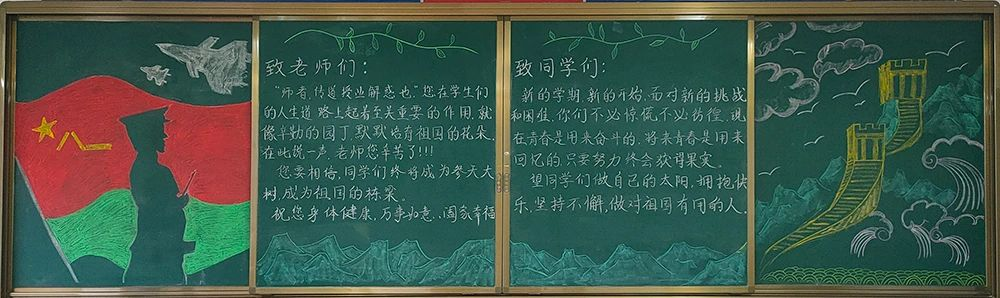 八一
致老师们：
"师者，传道授业解惑也。"您在学生们
的人生道路上起着至关重要的作用，就
像辛勤的园丁默默培育祖国的花朵，
在此说一声，老师您辛苦了!!!
您要相信，同学们终将成为参天大
树，成为祖国的栋梁。
祝您身体健康，万事如意，阖家幸福
致同学们：
新的学期，新的开始，面对新的挑战
和困难，你们不必惊慌，不必彷徨，现
在青春是用来奋斗的，将来青春是用来
回忆的，只要努力终会获得果实。
望同学们做自己的太阳，拥抱快
乐，坚持不懈，做对祖国有用的人。